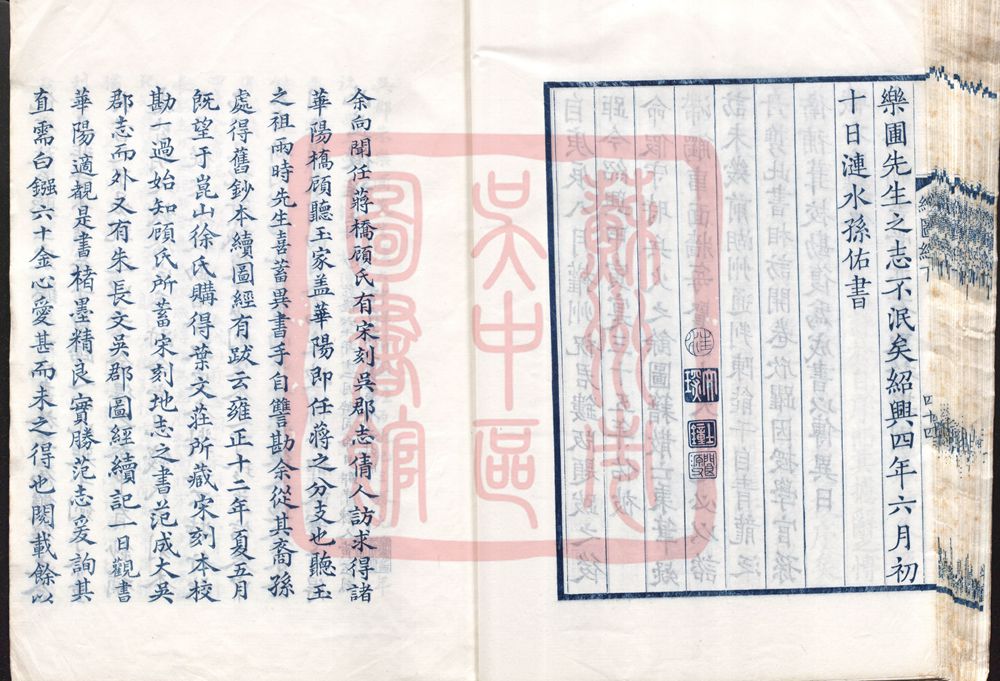 樂圃先生之志不泯矣紹興四年六月初
十日漣水孫佑書
續圖經下
四十四
余向聞任蔣橋顧氏有宋刻吳郡志倩人訪求得諸
華陽橋顧聽玉家盖華陽即任蔣之分支也聽玉
之祖雨時先生喜蓄異書手自讐勘余從其裔孫
處得舊鈔本續圖經有跋云雍正十二年夏五月
旣望于崑山徐氏購得葉文莊所藏宋刻本校
勘一過始知顧氏所蓄宋刻地志之書范成大吳
郡志而外又有朱長文吳郡圖經續記一日觀書
華陽適覩是書楮墨精良實勝范志爰詢其
直需白鏹六十金心愛甚而未之得也閱載餘以
蘇州市
吳中區
圖書館